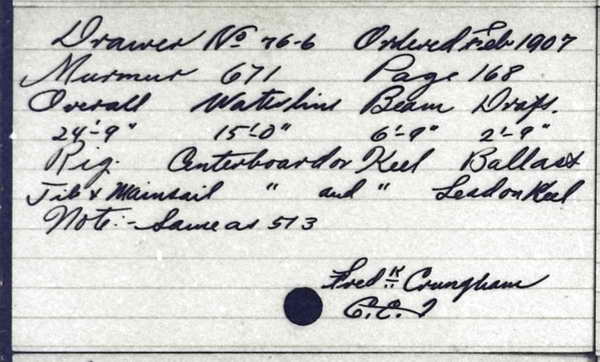 Drawer No 76-6 Ordered Feb 1907
Murmur 671 Page 168
Overall Waterline Beam Draft.
24'-9" 15'-0" 6'-9" 2'-9"
Rig. Centerboard or Keel Ballast
Jib & Mainsail " and " Lead on Keel
Note:- Same as 513
Fredk